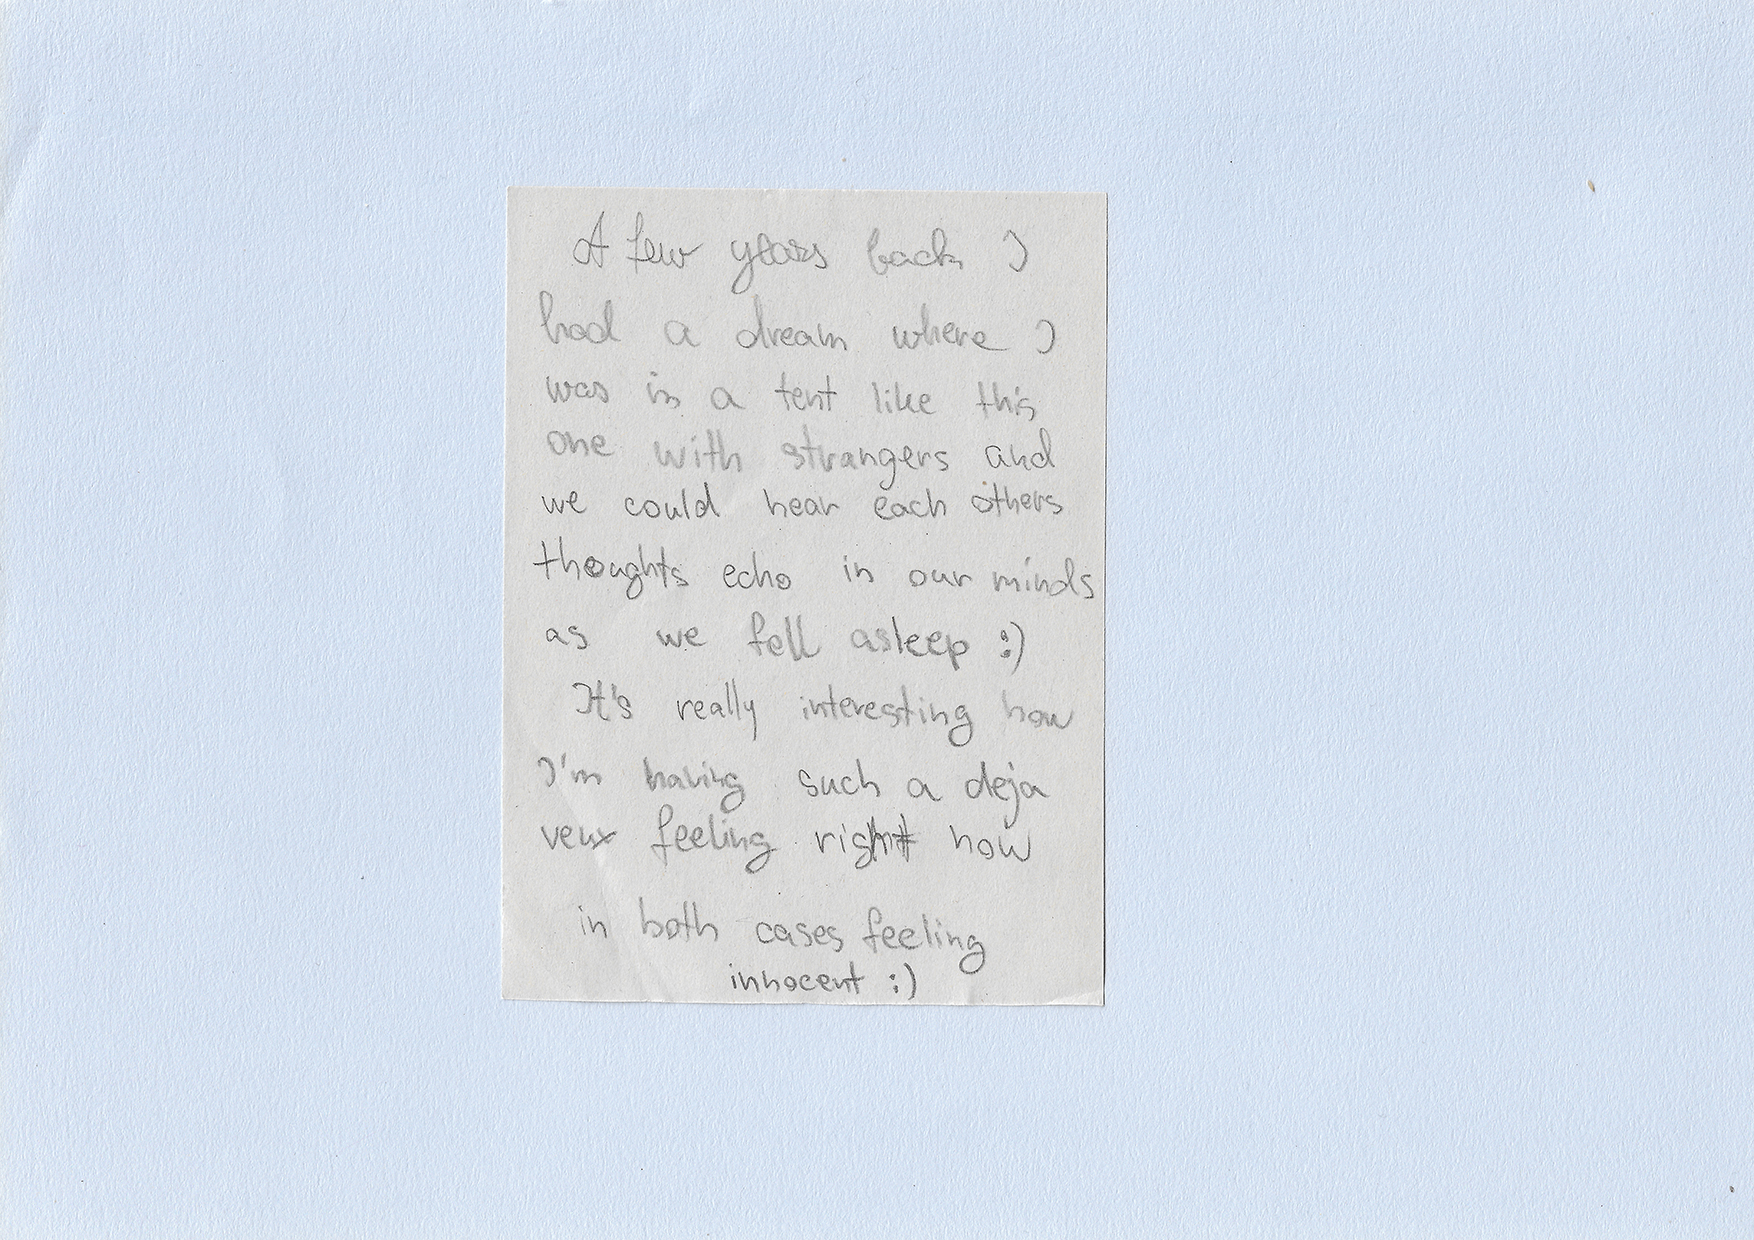 A few years back I
had a dream where I
was in a tent like this
one with strangers and
we could hear each others
thoughts echo in our minds
as we fell asleep :)
It's really interesting how
I'm having such a deja
veux feeling right now
in both cases feeling
innocent :)